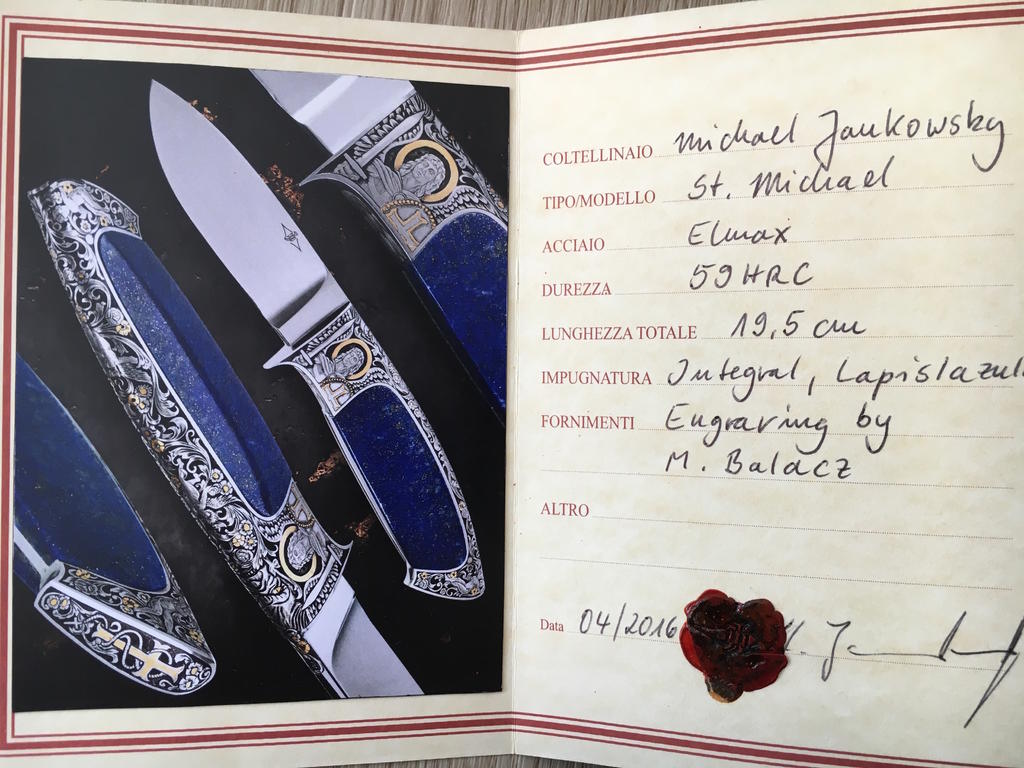 COLTELLINAIO Michael Jankowsky
TIPO/MODELLO St. Michael
ACCIAIO Elmax
DUREZZA 59 HRC
LUNGHEZZA TOTALE 19,5 cm
IMPUGNATURA Integral, Lapislazuli
FORNIMENTI Engraving by
M. Balacz
ALTRO
Data 04/2016